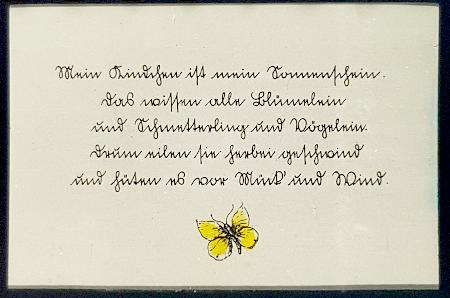 Mein Kindchen ist mein Sonnenschein.
Das wissen alle Blümelein
und Schmetterling und Vögelein.
Drum eilen sie herbei geschwind
und hüten es vor Mück' und Wind.